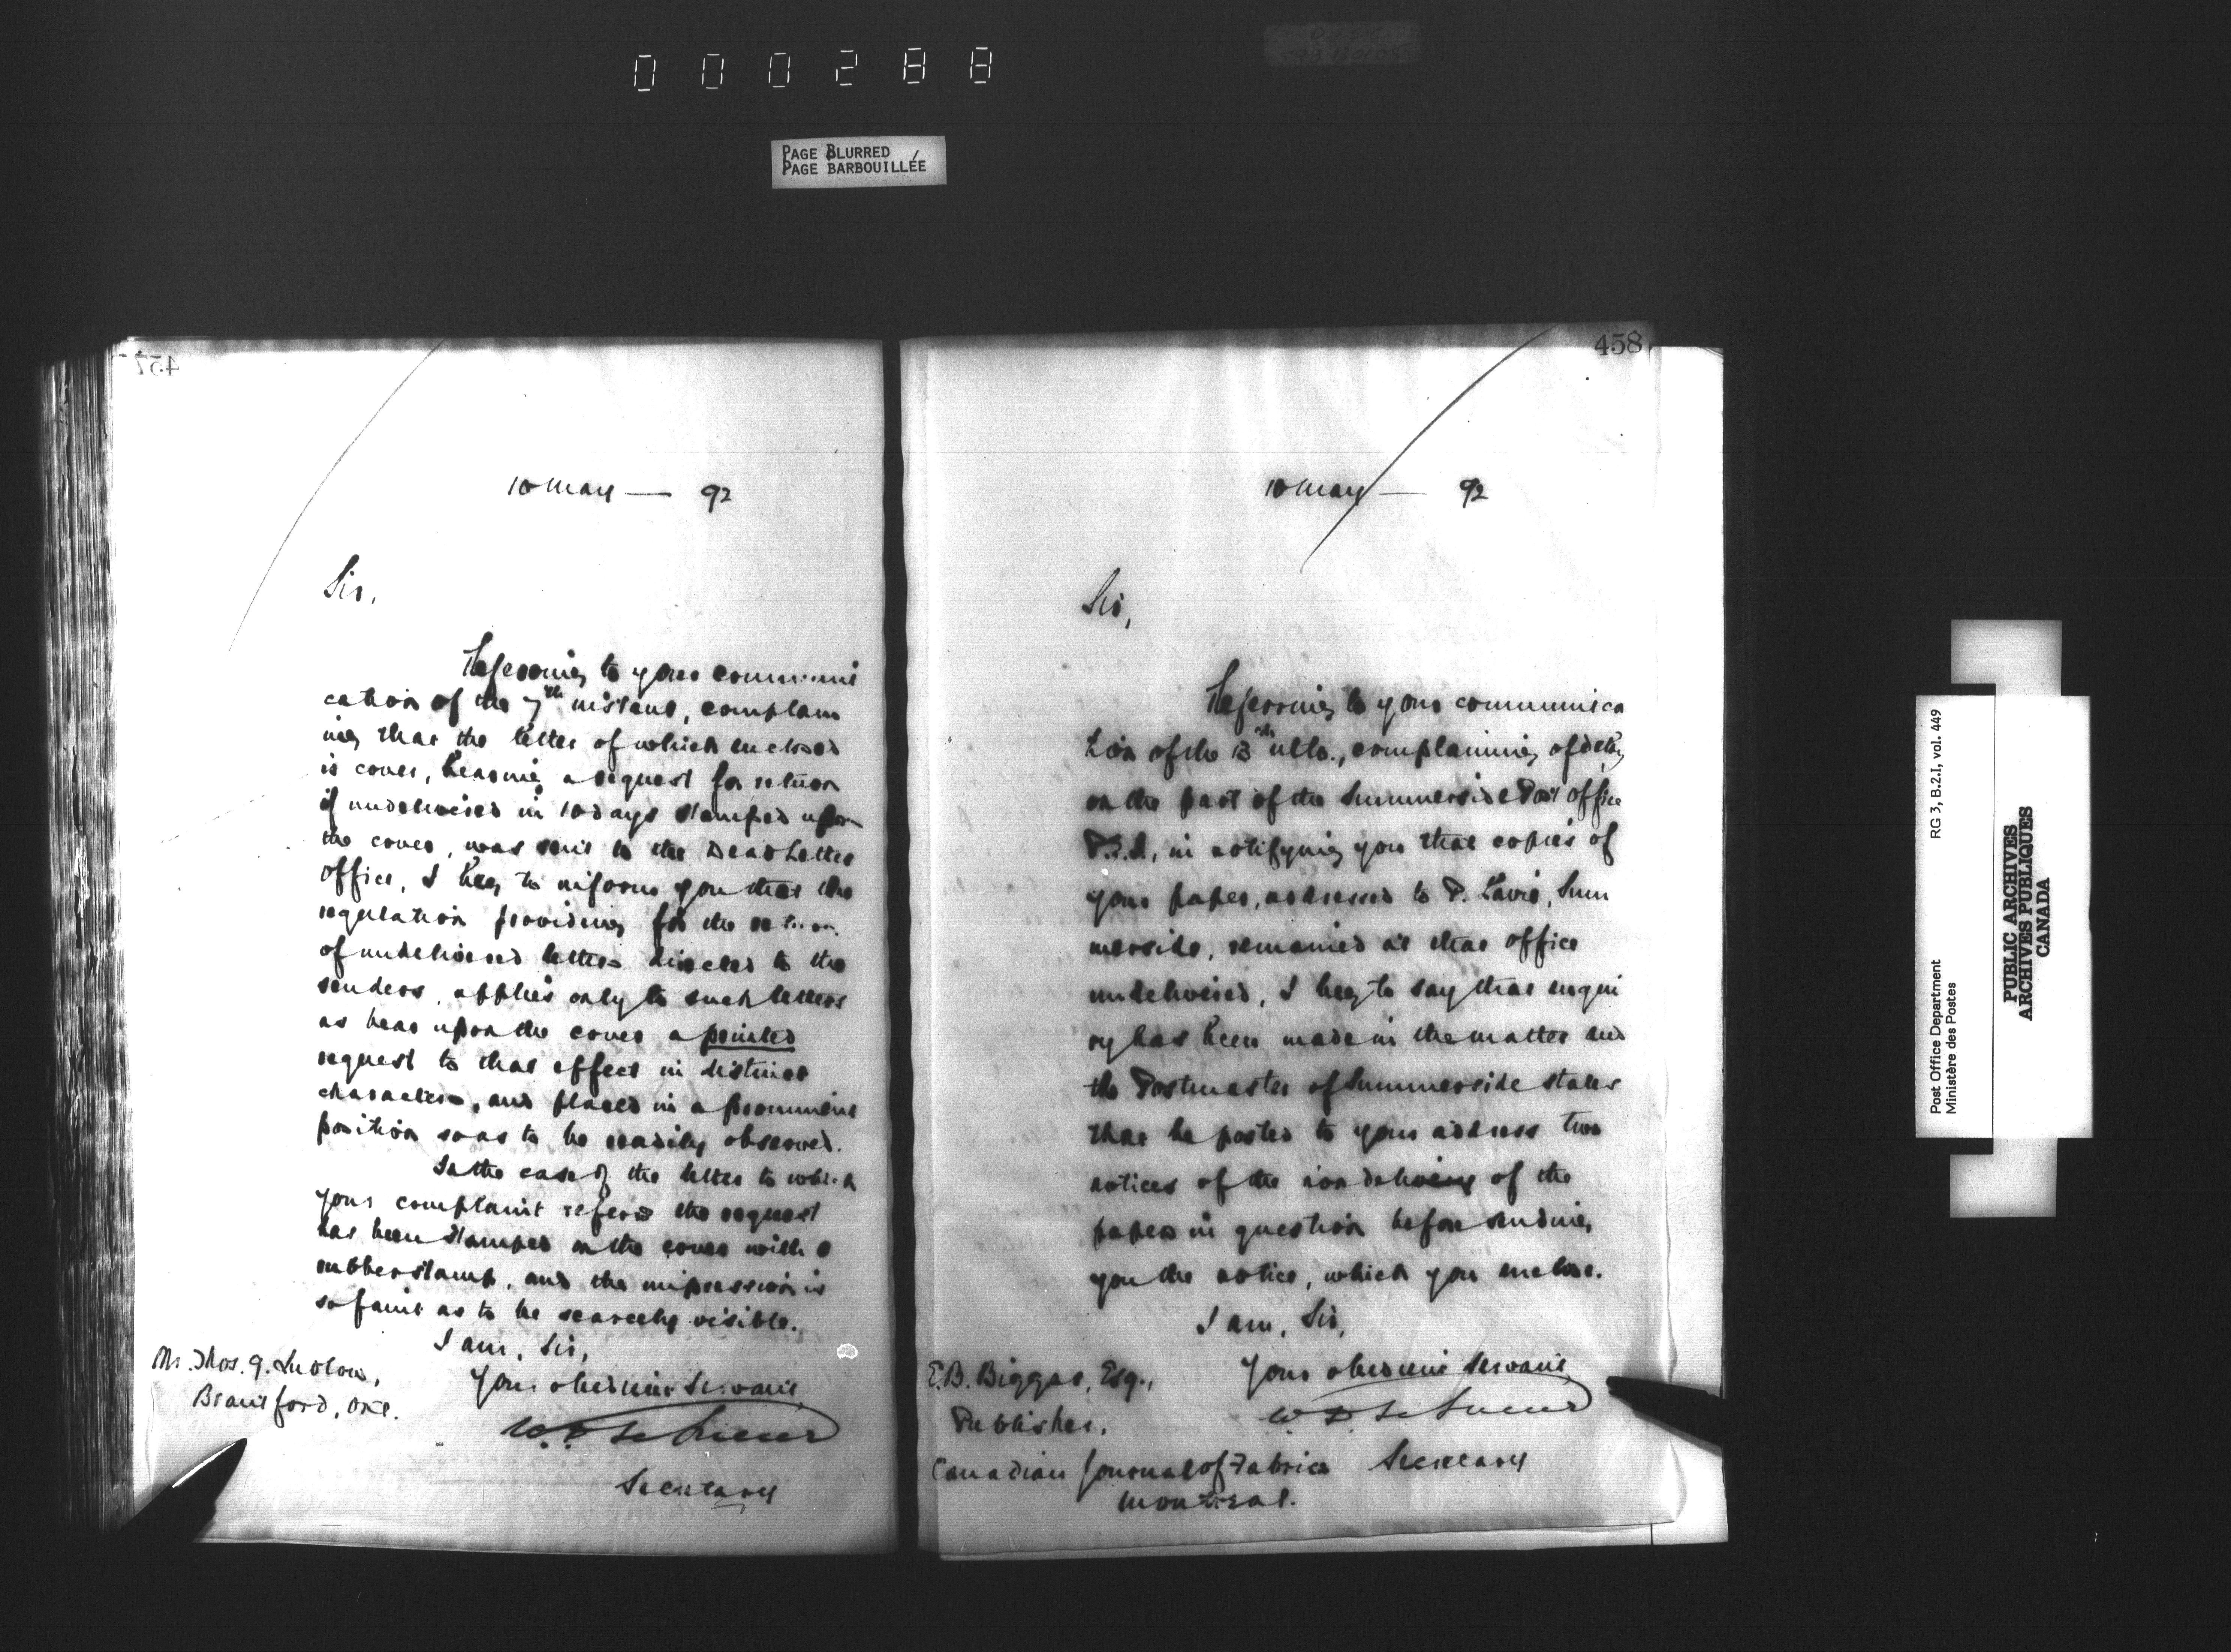 000288
PAGE BLURRED
PAGE BARBOUILLÉE
457
10 May — 92
Sir,
Referring to your communi
cation of the 7th instant, complain
ing that the letter of which enclosed
is cover, bearing a request for return
if undelivered in 10 days stamped upon
the cover, was sent to the Dead Letter
Office, I beg to inform you that the
regulation providing for the return
of undelivered letters directed to the
senders, applies only to such letters
as bear upon the cover a printed
request to that effect in distinct
characters, and placed in a prominent
position so as to be readily observed.
In the case of the letter to which
your complaint refers the request
has been stamped on the cover with a
rubber stamp, and the impression is
so faint as to be scarcely visible.
I am, Sir,
Your obedient Servant,
W. D. LeSueur
Secretary
Mr. Thos. G. Ludlow,
Brantford, Ont.
458
10 May — 92
Sir,
Referring to your communica
tion of the 13th ulto., complaining of delay
on the part of the Summerside Post Office
P.E.I., in notifying you that copies of
your paper, addressed to P. Lavie, Sum
merside, remained at that office
undelivered, I beg to say that inqui
ry has been made in the matter and
the Postmaster of Summerside states
that he posted to your address two
notices of the non delivery of the
papers in question before sending
you the notice, which you enclose.
I am, Sir,
Your obedient Servant,
W D LeSueur
Secretary
E.B. Biggar, Esq.,
Publisher,
Canadian Journal of Fabrics
Montreal.
Post Office Department
Ministère des Postes
RG 3, B.2.I, vol. 449
PUBLIC ARCHIVES
ARCHIVES PUBLIQUES
CANADA